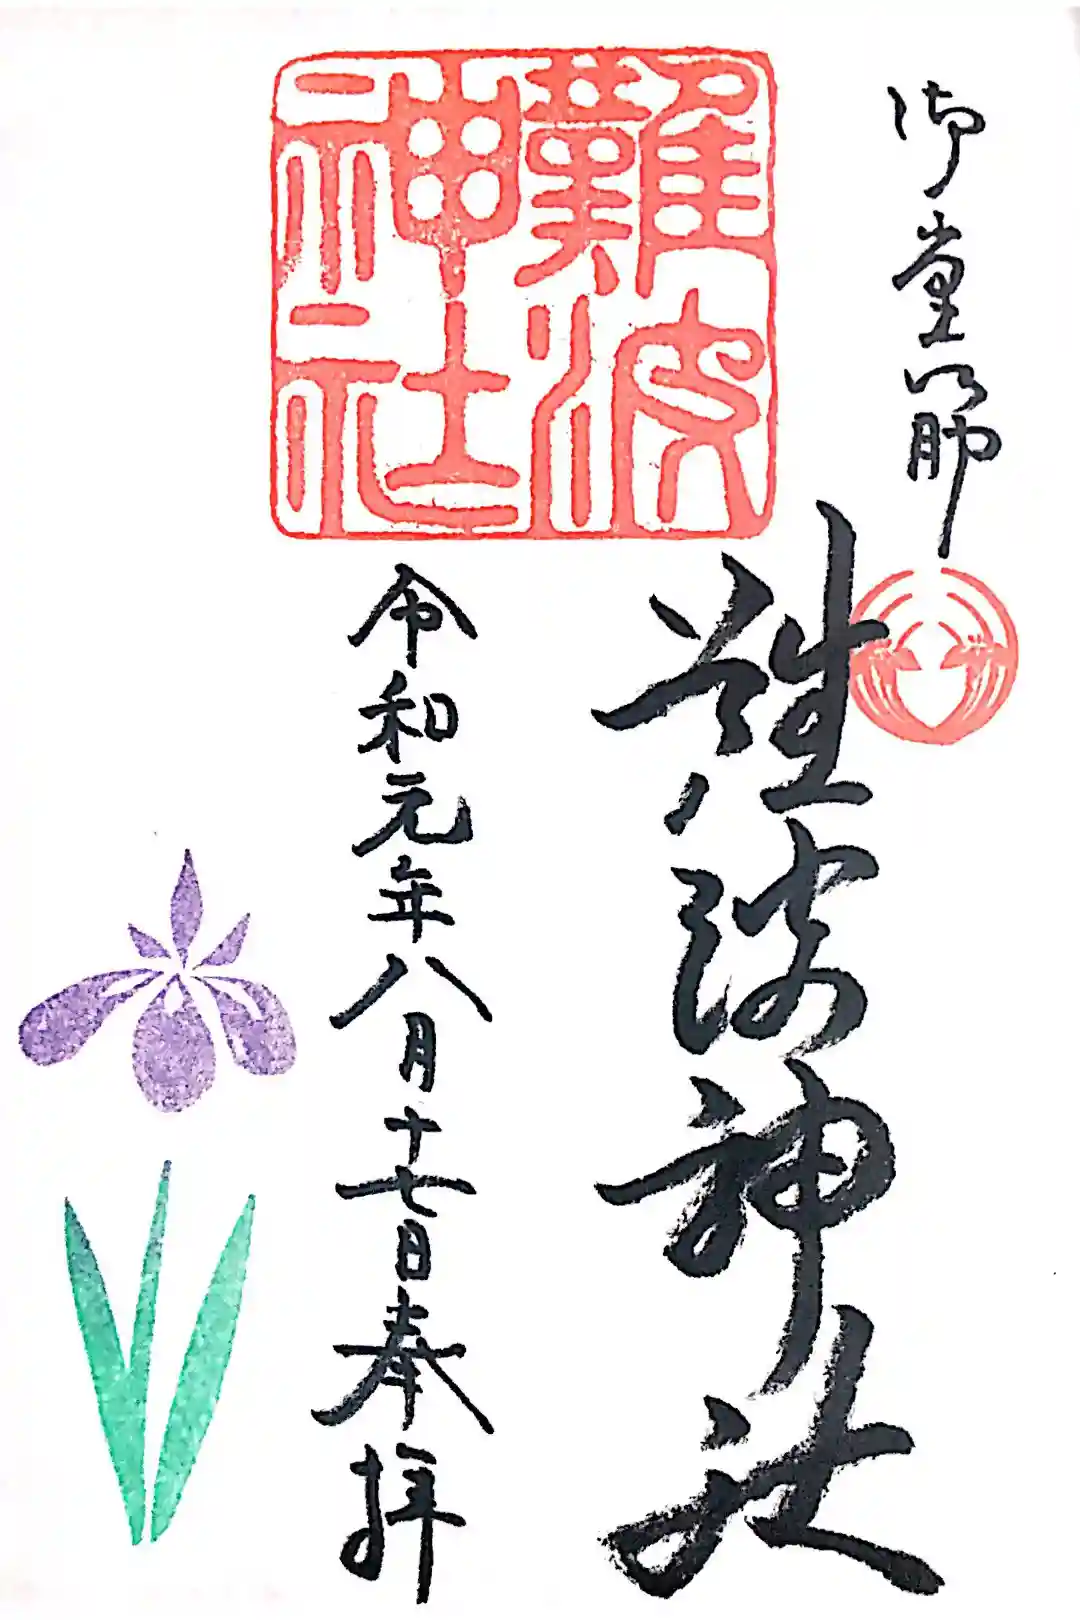 御堂筋
難波神社
難波
神社
令和元年八月十七日奉拝